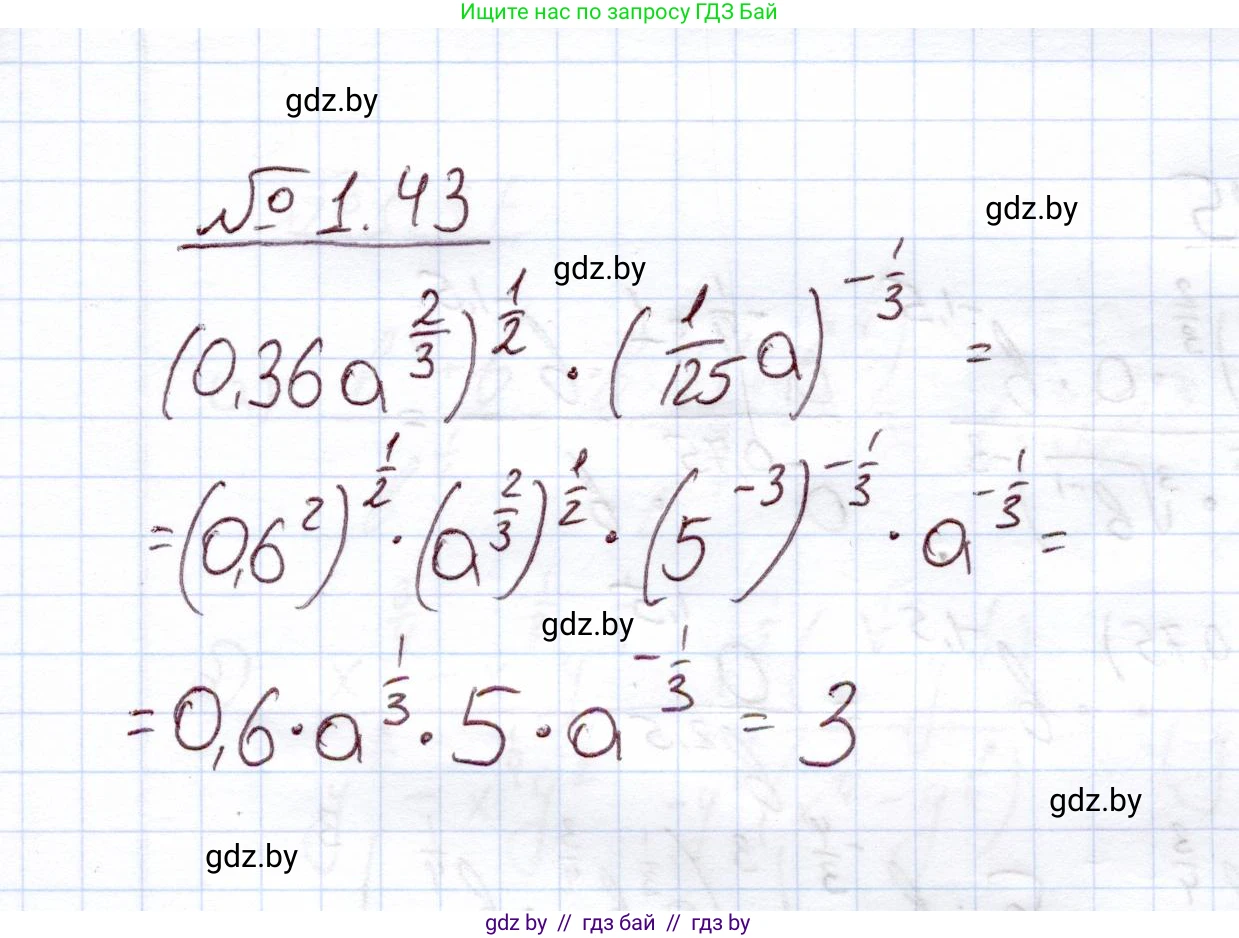 Ищите нас по запросу ГДЗ Бай
gdz.by
№ 1.43
gdz.by
gdz.by
(0,36 a^(2/3))^(1/2) · (1/125 a)^(-1/3) =
= (0,6²)^(1/2) · (a^(2/3))^(1/2) · (5^(-3))^(-1/3) · a^(-1/3) =
gdz.by
= 0,6 · a^(1/3) · 5 · a^(-1/3) = 3
gdz.by
gdz.by
gdz by // гдз бай // гдз by